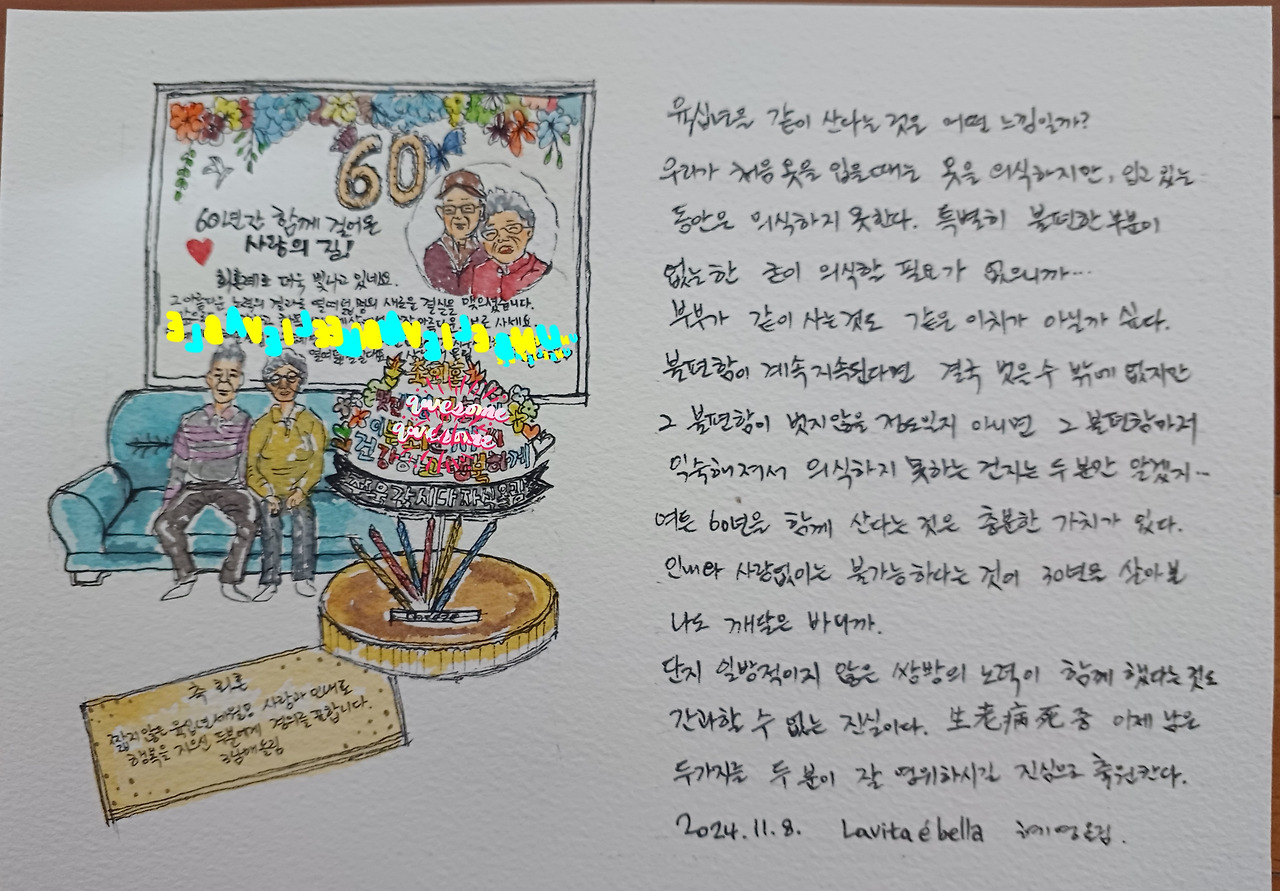 60
60년간 함께 걸어온
사랑의 길!
회혼례로 더욱 빛나고 있네요.
그 아름다운 노력의 결과로 열여덟 명의 새로운 결실을 맺으셨습니다.
축회혼
awesome
awesome
건강하고 행복하게
축 회혼
짧지 않은 육십년 세월을 사랑과 인내로
행복을 지으신 두분에게 경의를 표합니다.
육십년을 같이 산다는 것은 어떤 느낌일까?
우리가 처음 옷을 입을 때는 옷을 의식하지만, 입고 있는
동안은 의식하지 못한다. 특별히 불편한 부분이
없는한 굳이 의식할 필요가 없으니까...
부부가 같이 사는 것도 같은 이치가 아닐까 싶다.
불편함이 계속 지속된다면 결국 벗을 수 밖에 없지만
그 불편함이 벗지않을 정도인지 아니면 그 불편함마저
익숙해져서 의식하지 못하는 건지는 두 분만 알겠지...
여튼 60년을 함께 산다는 것은 충분한 가치가 있다.
인내와 사랑없이는 불가능하다는 것이 30년을 살아본
나도 깨달은 바니까.
단지 일방적이지 않은 쌍방의 노력이 함께 했다는 것도
간과할 수 없는 진실이다. 生老病死 중 이제 남은
두가지를 두 분이 잘 영위하시길 진심으로 축원한다.
2024.11.8. Lavita é bella